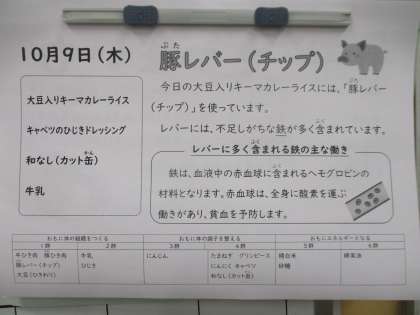 10月9日(木)
大豆入りキーマカレーライス
キャベツのひじきドレッシング
和なし(カット缶)
牛乳
豚レバー(チップ)
今日の大豆入りキーマカレーライスには、「豚レバー
(チップ)」を使っています。
レバーには、不足しがちな鉄が多く含まれています。
レバーに多く含まれる鉄の主な働き
鉄は、血液中の赤血球に含まれるヘモグロビンの
材料となります。赤血球は、全身に酸素を運ぶ
働きがあり、貧血を予防します。
おもに体の組織をつくる おもに体の調子を整える おもにエネルギーとなる
1群 2群 3群 4群 5群 6群
牛ひき肉 豚ひき肉 牛乳 にんじん たまねぎ グリンピース 精白米
豚レバー(チップ) ひじき にんにく キャベツ 砂糖
大豆(ひきわり) 和なし(カット缶)